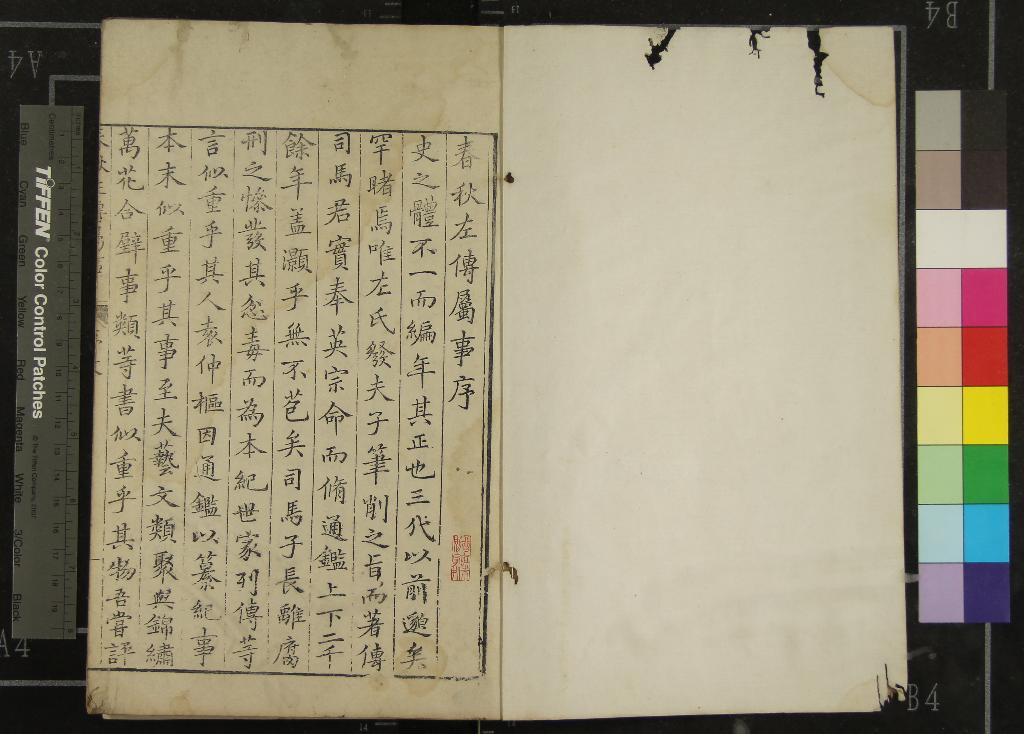 春秋左傳屬事序
史之體不一而編年其正也三代以前邈矣
罕睹焉唯左氏發夫子筆削之旨而著傳
司馬君實奉英宗命而脩通鑑上下二千
餘年蓋灝乎無不苞矣司馬子長離腐
刑之慘發其忿毒而為本紀世家列傳等
言似重乎其人袁仲樞因通鑑以纂紀事
本末似重乎其事至夫藝文類聚與錦繡
萬花合璧事類等書似重乎其物吾嘗評
TIFFEN Color Control Patches
© The Tiffen Company, 2007
Centimetres
Inches
Blue
Cyan
Green
Yellow
Red
Magenta
White
3/Color
Black
A4
A4
B4
B4